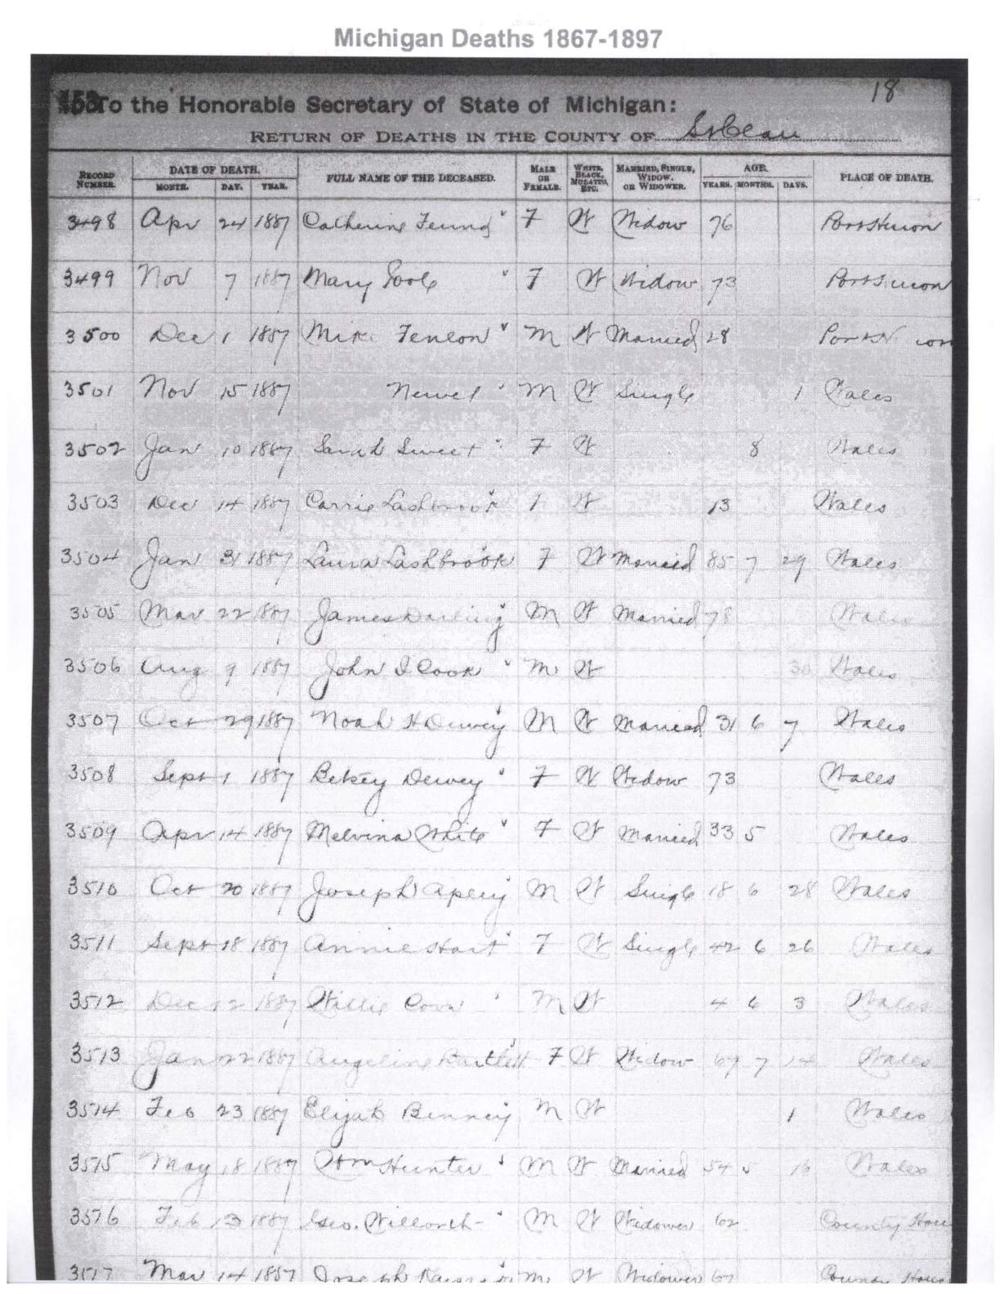 Michigan Deaths 1867-1897
18
To the Honorable Secretary of State of Michigan:
RETURN OF DEATHS IN THE COUNTY OF St Clair
RECORD NUMBER. DATE OF DEATH. MONTH. DAY. YEAR. FULL NAME OF THE DECEASED. MALE OR FEMALE. WHITE, BLACK, MULATTO, ETC. MARRIED, SINGLE, WIDOW, OR WIDOWER. AGE. YEARS. MONTHS. DAYS. PLACE OF DEATH.
3498 Apr 24 1887 Catherine F W Widow 76 Port Huron
3499 Nov 7 1887 Mary F W Widow 73 Port Huron
3500 Dec 1 1887 Mike Fenlon M W Married 28 Port H on
3501 Nov 15 1887 Newel M W Single 1 Wales
3502 Jan 10 1887 Sarah Sweet F W 8 Wales
3503 Dec 14 1887 Carrie Lashbrook F W 13 Wales
3504 Jan 31 1887 Laura Lashbrook F W Married 85 7 29 Wales
3505 Mar 22 1887 James Darling M W Married 78 Wales
3506 Aug 9 1887 John I Cook M W 30 Wales
3507 Oct 29 1887 Noah H Dewey M W Married 31 6 7 Wales
3508 Sept 1 1887 Betsey Dewey F W Widow 73 Wales
3509 Apr 14 1887 Melvina White F W Married 33 5 Wales
3510 Oct 20 1887 Joseph M W Single 18 6 28 Wales
3511 Sept 18 1887 Annie Hart F W Single 42 6 26 Wales
3512 Dec 12 1887 Willie M W 4 6 3 Wales
3513 Jan 22 1887 Angeline Bartlett F W Widow 69 7 14 Wales
3514 Feb 23 1887 Elijah Binney M W 1 Wales
3515 May 18 1887 Wm Hunter M W Married 54 5 16 Wales
3516 Feb 13 1887 Geo. M W Widower 62 County Hou
3517 Mar 14 1887 Joseph M W Widower 67 County Hous